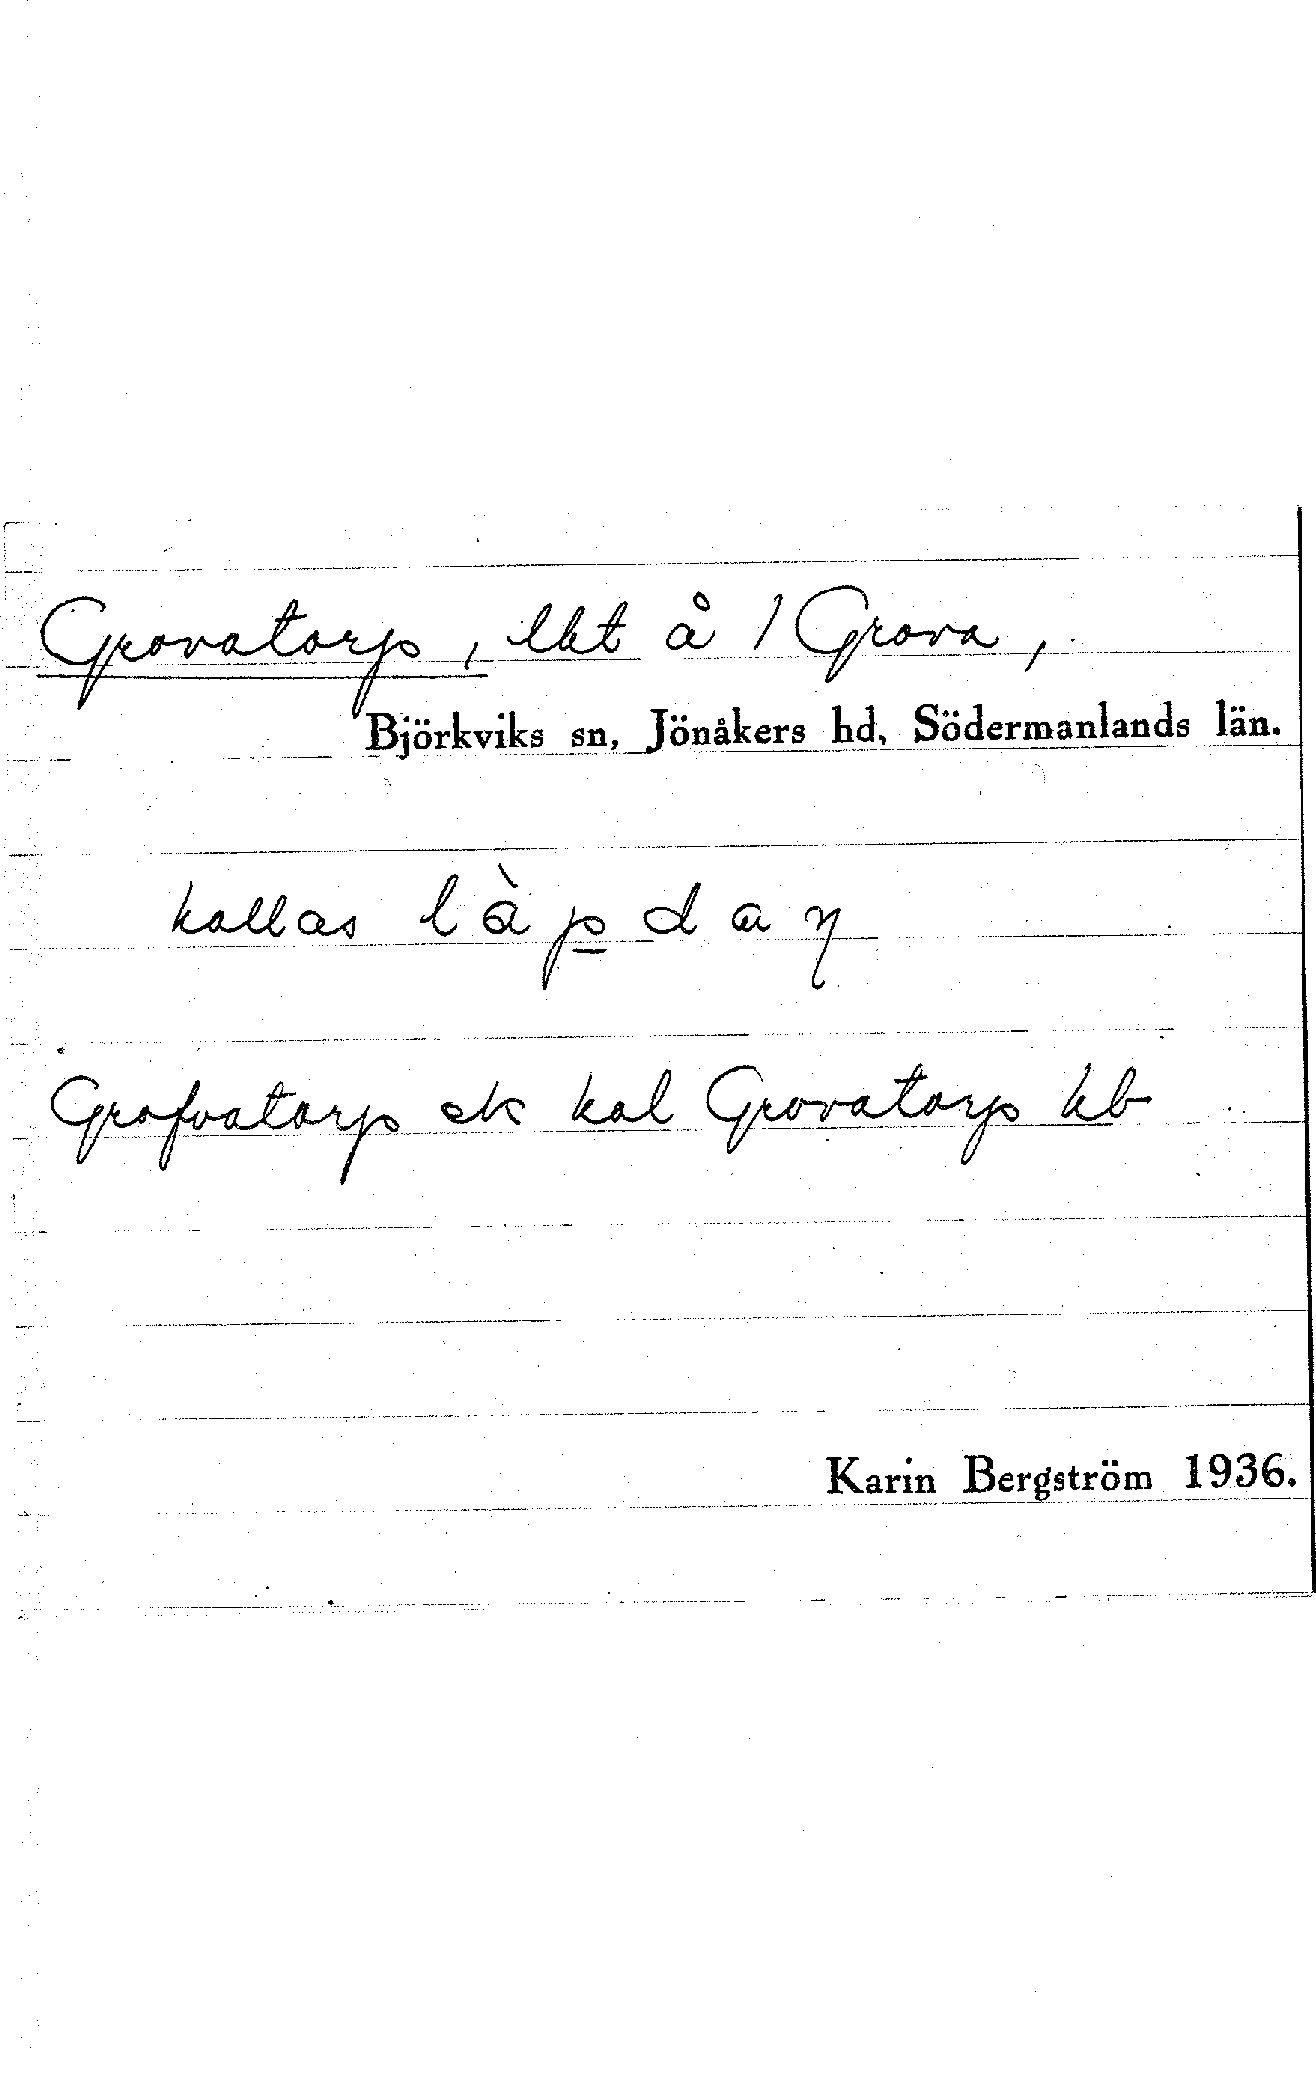 Grovatorp, lht å 1 Grova,
Björkviks sn, Jönåkers hd, Södermanlands län.
kallas làpdaŋ
Grofvatorp ek kal Grovatorp kb
Karin Bergström 1936.